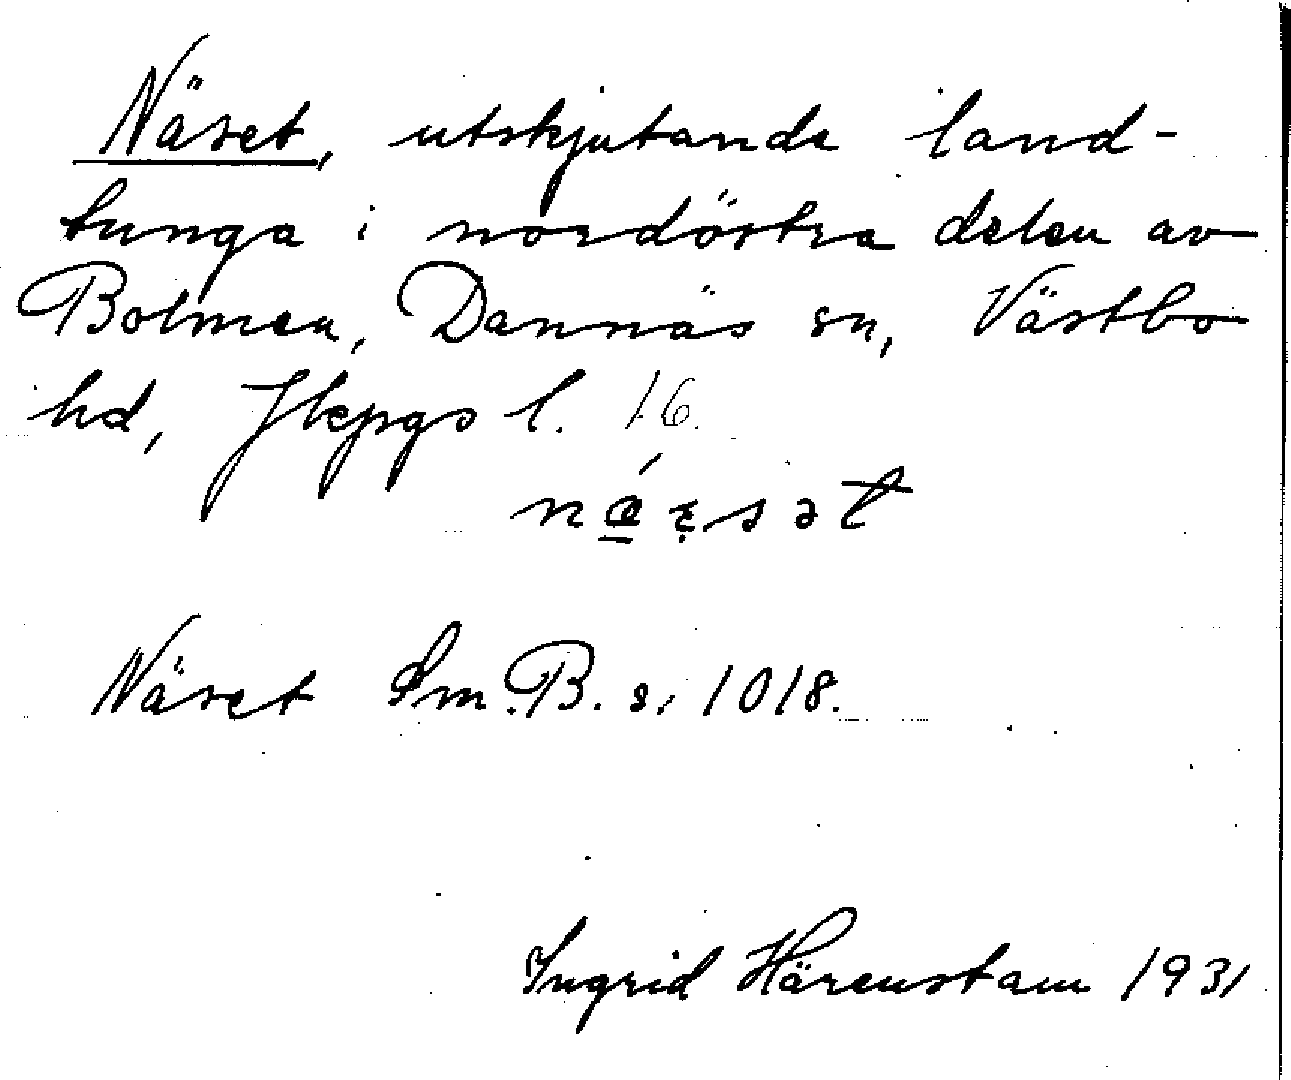 Näset, utskjutande land-
tunga i nordöstra delen av
Bolmen, Dannäs sn, Västbo
hd, Jkpgs l. 16.
Näset Sm.B. s. 1018.
Ingrid Härenstam 1931